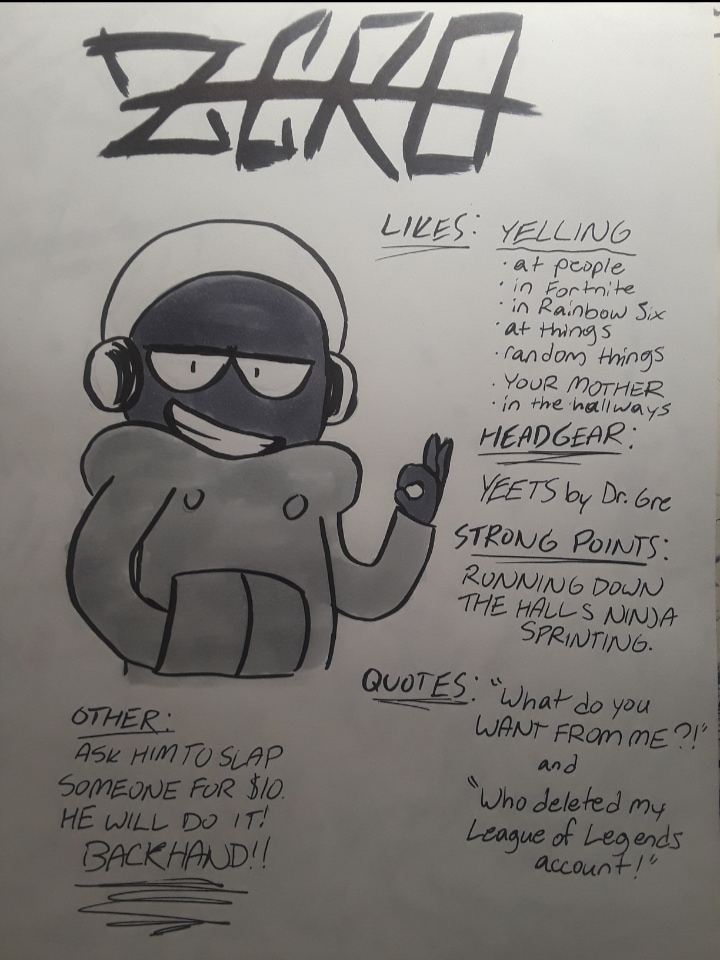 ZERO
LIKES: YELLING
· at people
· in Fortnite
· in Rainbow Six
· at things
· random things
· YOUR MOTHER
· in the hallways
HEADGEAR:
YEETS by Dr. Gre
STRONG POINTS:
RUNNING DOWN
THE HALLS NINJA
SPRINTING.
QUOTES: "What do you
WANT FROM ME?!"
and
"Who deleted my
League of Legends
account!"
OTHER:
ASK HIM TO SLAP
SOMEONE FOR $10.
HE WILL DO IT!
BACKHAND!!